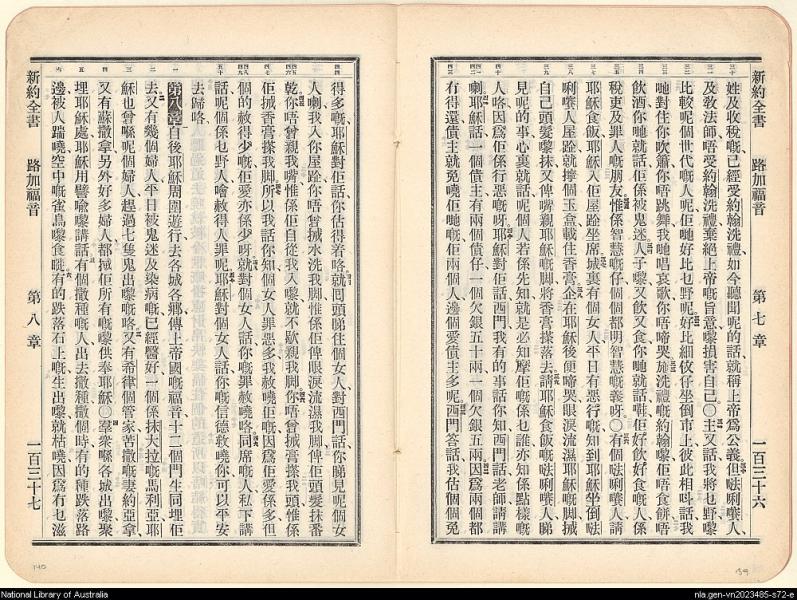 新約全書 路加福音 第七章 一百三十六
姓及收稅嘅已經受約翰洗禮如今聽聞呢的話就稱上帝爲公義但𠵽唎㘔人
及敎法師唔受約翰洗禮棄絕上帝嘅旨意嚟損害自己〇主又話我將乜野嚟
比較呢個世代嘅人呢佢哋好比乜野呢好比細蚊仔坐倒市上彼此相呌話我
哋對住你吹簫你唔跳舞我哋唱哀歌你唔啼哭施洗禮嘅約翰嚟佢唔食餅唔
飲酒你哋就話佢係被鬼迷人子嚟又飲又食你哋就話睇佢好飲好食嘅人係
稅吏及罪人嘅朋友惟係智慧嘅仔個個都明智慧嘅義呀〇有個𠵽唎㘔人請
耶穌食飯耶穌入佢屋跲坐席城裏有個女人平日有惡行嘅知到耶穌坐倒𠵽
唎㘔人屋跲就擰個玉盒載住香膏企在耶穌後便啼哭眼淚流濕耶穌嘅脚搣
自己頭髮嚟抹又俾嘴親耶穌嘅脚將香膏搽落去請耶穌食飯嘅𠵽唎㘔人睇
見呢的事心裏就話呢個人若係先知就是必知摩佢嘅係乜誰亦知係點樣嘅
人咯因爲佢係行惡嘅呀耶穌對佢話西門我有的事話你知西門話老師請講
喇耶穌話一個債主有兩個債仔一個欠銀五十兩一個欠銀五兩因爲兩個都
冇得還債主就免曉佢哋嘅佢兩個人邊個愛債主多呢西門答話我估個個免
得多嘅耶穌對佢話你估得着咯就回頭睇住個女人對西門話你睇見呢個女
人喇我入你屋跲你唔曾搣水洗我脚惟係佢俾眼淚流濕我脚俾佢頭髮抹番
乾你唔曾親我嘴惟係佢自從我入嚟就不歇親我脚你唔曾搣膏搽我頭惟係
佢搣香膏搽我脚所以我話你知個女人罪惡多我赦曉佢嘅因爲佢愛係多但
個的赦得少嘅佢愛亦係少呀就對個女人話你嘅罪赦曉咯同席嘅人私下講
話呢個係乜野人噲赦得人罪呢耶穌對個女人話你嘅信德救曉你可以平安
去歸咯
第八章自後耶穌周圍遊行去各城各鄉傳上帝國嘅福音十二個門生同埋佢
去又有幾個婦人平日被鬼迷及染病嘅已經醫好一個係抹大拉嘅馬利亞耶
穌也曾喺呢個婦人趕過七隻鬼出嚟嘅咯又有希律個管家苦撒嘅妻約亞拿
又有蘇撒拿另外好多婦人都搣佢所有嘅嚟供奉耶穌〇羣衆喺各城出嚟聚
埋耶穌處耶穌用譬喻嚟講話有個撒種嘅人出去撒種撒個時有的種跌落路
邊被人踹曉空中嘅雀鳥嚟食嘅有的跌落石上嘅生出嚟就枯曉因爲冇乜滋
新約全書 路加福音 第八章 一百三十七
National Library of Australia
nla.gen-vn2023485-s72-e